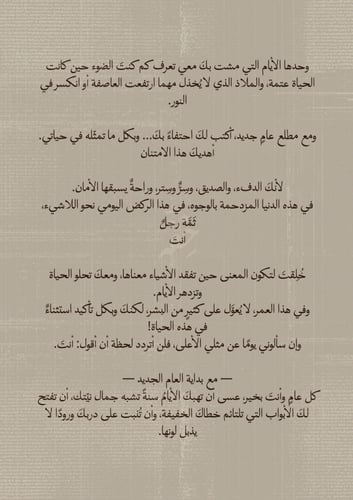 وحدها الأيام التي مشت بكَ معي تعرف كم كنتَ الضوء حين كانت
الحياة عتمة، والملاذ الذي لا يُخذل مهما ارتفعت العاصفة أو انكسر في
النور.
ومع مطلع عامٍ جديد، أكتب لكَ احتفاءً بكَ... وبكل ما تمثّله في حياتي.
أهديكَ هذا الامتنان
لأنكَ الدفء، والصديق، وسِرٌّ وسِتر، وراحةٌ يسبقها الأمان.
في هذه الدنيا المزدحمة بالوجوه، في هذا الركض اليومي نحو اللاشيء،
ثَمّة رجلٌ
أنتَ
خُلِقتَ لتكون المعنى حين تفقد الأشياء معناها، ومعكَ تحلو الحياة
وتزدهر الأيام.
وفي هذا العمر، لا يُعوَّل على كثيرٍ من البشر، لكنكَ وبكل تأكيد استثناءٌ
في هذه الحياة!
وإن سألوني يومًا عن مثلي الأعلى، فلن أتردد لحظة أن أقول: أنتَ.
— مع بداية العام الجديد —
كل عامٍ وأنتَ بخير، عسى أن تهبكَ الأيامُ سنةً تشبه جمال نيّتك، أن تفتح
لكَ الأبواب التي تلتائم خطاكَ الخفيفة، وأن تُنبت على دربكَ ورودًا لا
يذبل لونها.